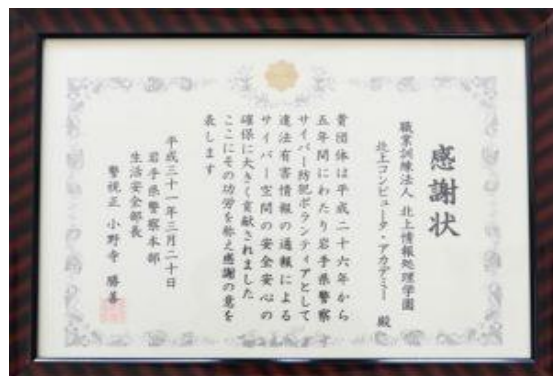 感謝状
職業訓練法人 北上情報処理学園
北上コンピュータ・アカデミー 殿
貴団体は平成二十六年から
五年間にわたり岩手県警察
サイバー防犯ボランティアとして
違法有害情報の通報による
サイバー空間の安全安心の
確保に大きく貢献されました
ここにその功労を称え感謝の意を
表します
平成三十一年三月二十日
岩手県警察本部
生活安全部長
警視正 小野寺 勝善